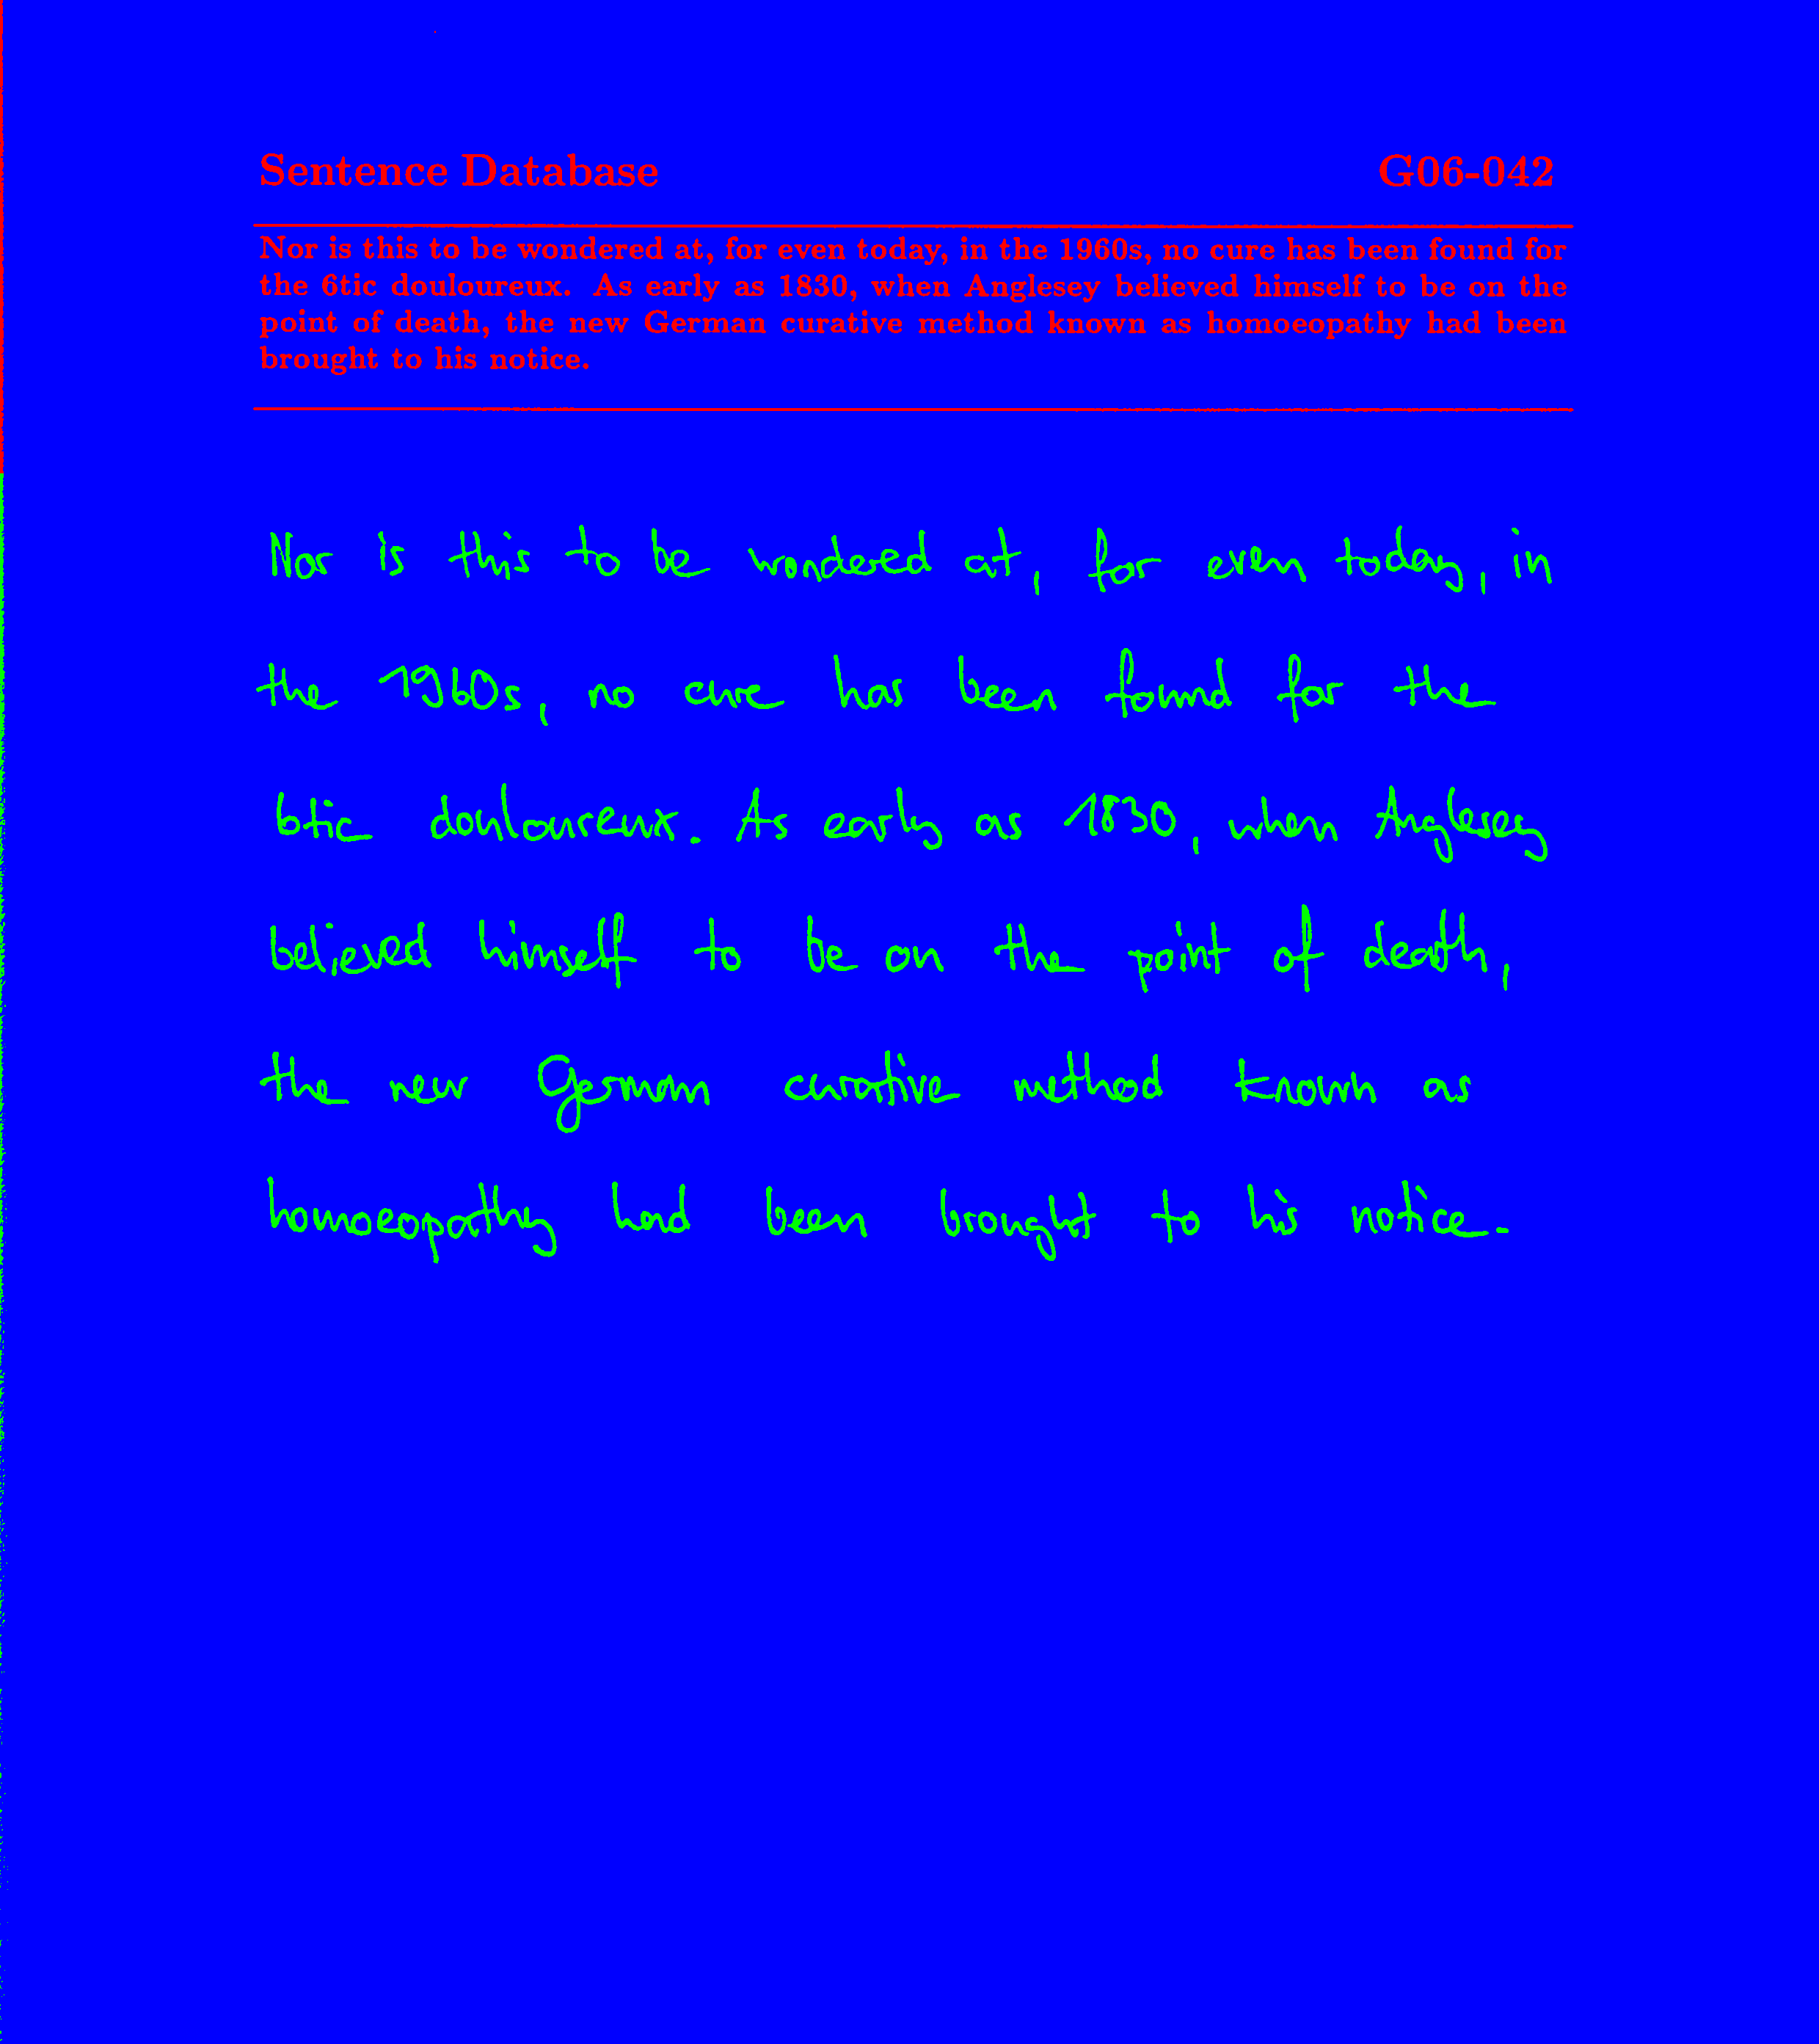 Sentence Database G06-042
Nor is this to be wondered at, for even today, in the 1960s, no cure has been found for
the 6tic douloureux. As early as 1830, when Anglesey believed himself to be on the
point of death, the new German curative method known as homoeopathy had been
brought to his notice.
Nor is this to be wondered at, for even today, in
the 1960s, no cure has been found for the
6tic douloureux. As early as 1830, when Anglesey
believed himself to be on the point of death,
the new German curative method known as
homoeopathy had been brought to his notice.